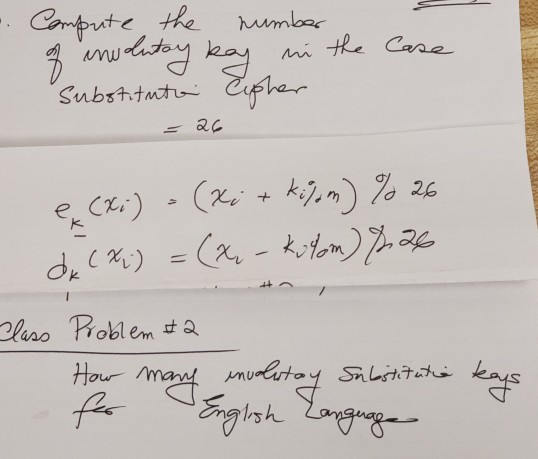 . Compute the number
of involutory key in the Case
Substitution Cipher
= 26
e_k (x_i) = (x_i + k_i%m) % 26
d_k (x_i) = (x_i - k_i%m) % 26
Class Problem #2
How many involutory Substitution keys
for English Language